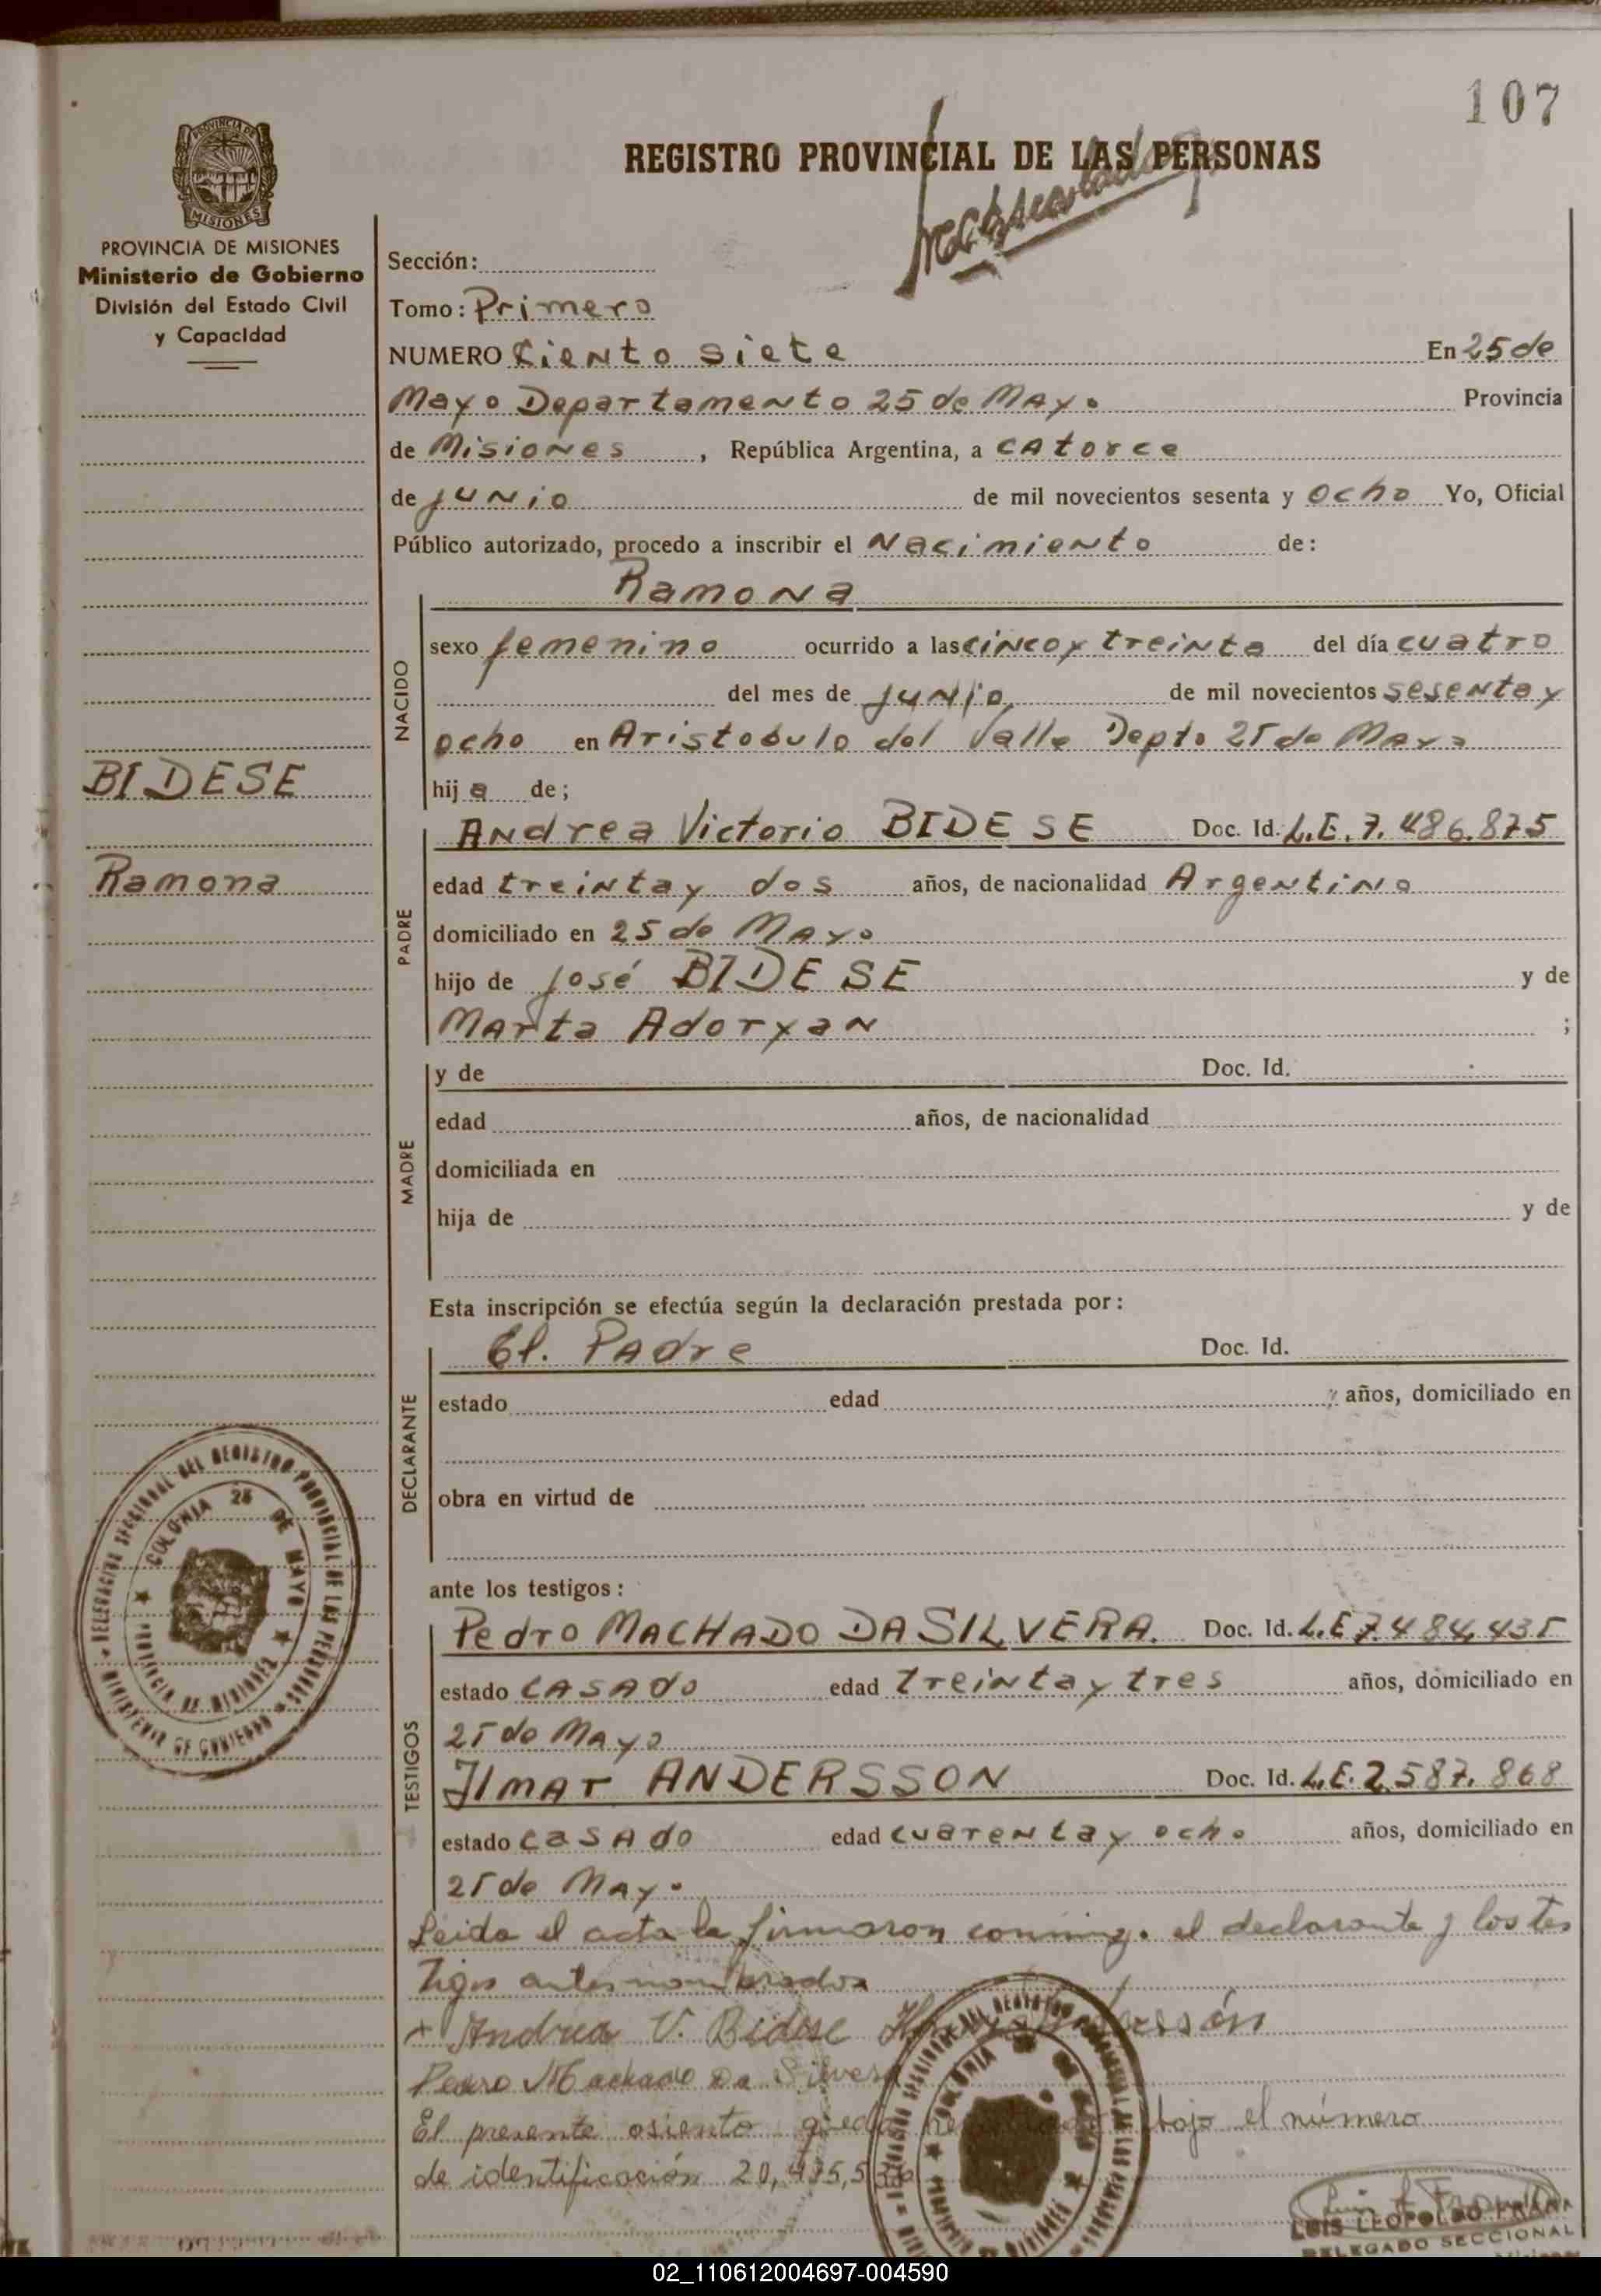 107
REGISTRO PROVINCIAL DE LAS PERSONAS
PROVINCIA DE MISIONES
PROVINCIA DE MISIONES
Ministerio de Gobierno
División del Estado Civil
y Capacidad
Sección:
Tomo: Primero
NUMERO Ciento siete En 25 de
Mayo Departamento 25 de Mayo Provincia
de Misiones, República Argentina, a catorce
de junio de mil novecientos sesenta y ocho Yo, Oficial
Público autorizado, procedo a inscribir el Nacimiento de:
Ramona
NACIDO
sexo femenino ocurrido a las cinco y treinta del día cuatro
del mes de junio de mil novecientos sesenta y
ocho en Aristobulo del Valle Depto 25 de Mayo
BIDESE
hija de;
Andrea Victorio BIDESE Doc. Id. L.E. 7.486.875
Ramona
PADRE
edad treinta y dos años, de nacionalidad Argentino
domiciliado en 25 de Mayo
hijo de José BIDESE y de
Marta Adoryan ;
MADRE
y de Doc. Id.
edad años, de nacionalidad
domiciliada en
hija de y de
Esta inscripción se efectúa según la declaración prestada por:
DECLARANTE
El. Padre Doc. Id.
estado edad años, domiciliado en
obra en virtud de
DELEGACION SECCIONAL DEL REGISTRO PROVINCIAL DE LAS PERSONAS
MINISTERIO DE GOBIERNO
COLONIA 25 DE MAYO
PROVINCIA DE MISIONES
ante los testigos:
TESTIGOS
Pedro MACHADO DASILVERA. Doc. Id. L.E 7.484.435
estado CASADO edad treinta y tres años, domiciliado en
25 de Mayo
Jlmar ANDERSSON Doc. Id. L.E. 2.587.868
estado casado edad cuarenta y ocho años, domiciliado en
25 de Mayo
Leida el acta la firmaron conmigo el declarante y los tes
tigos antes nombrados
+ Andrea V. Bidese
Pedro Machado Da Silvera
El presente asiento queda bajo el número
de identificación 20,435,5
LUIS LEOPOLDO
DELEGADO SECCIONAL
02_110612004697-004590